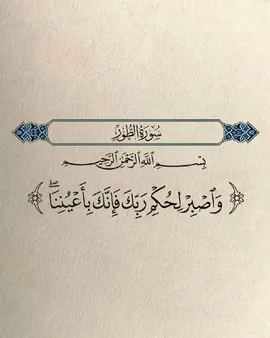 سُورَةُ الطُّورِ
بِسْمِ اللَّهِ الرَّحْمَٰنِ الرَّحِيمِ
وَٱصْبِرْ لِحُكْمِ رَبِّكَ فَإِنَّكَ بِأَعْيُنِنَاۖ